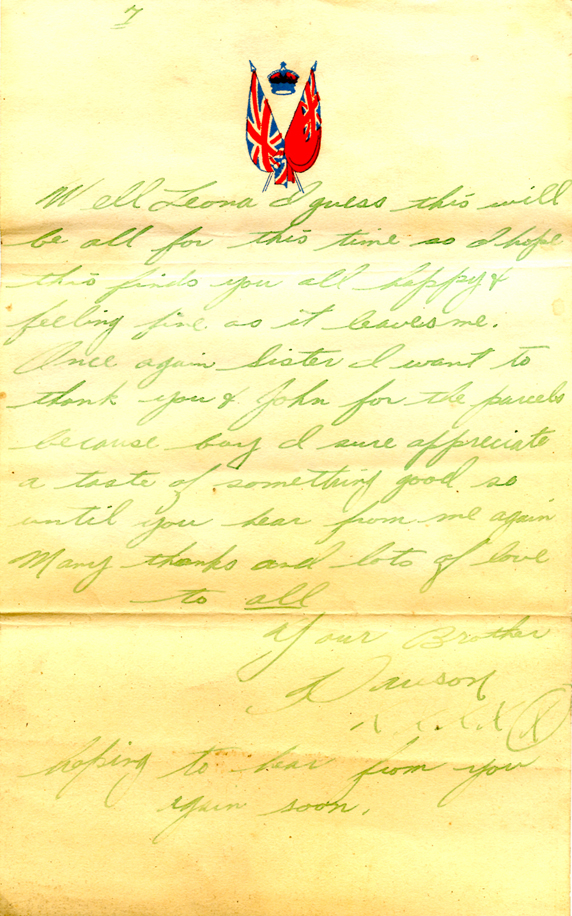 7
Well Leona I guess this will
be all for this time so I hope
this finds you all happy &
feeling fine as it leaves me.
Once again Sister I want to
thank you & John for the parcels
because boy I sure appreciate
a taste of something good so
until you hear from me again
Many thanks and lots of love
to all
Your Brother
Dawson
X X X X X
hoping to hear from you
again soon.